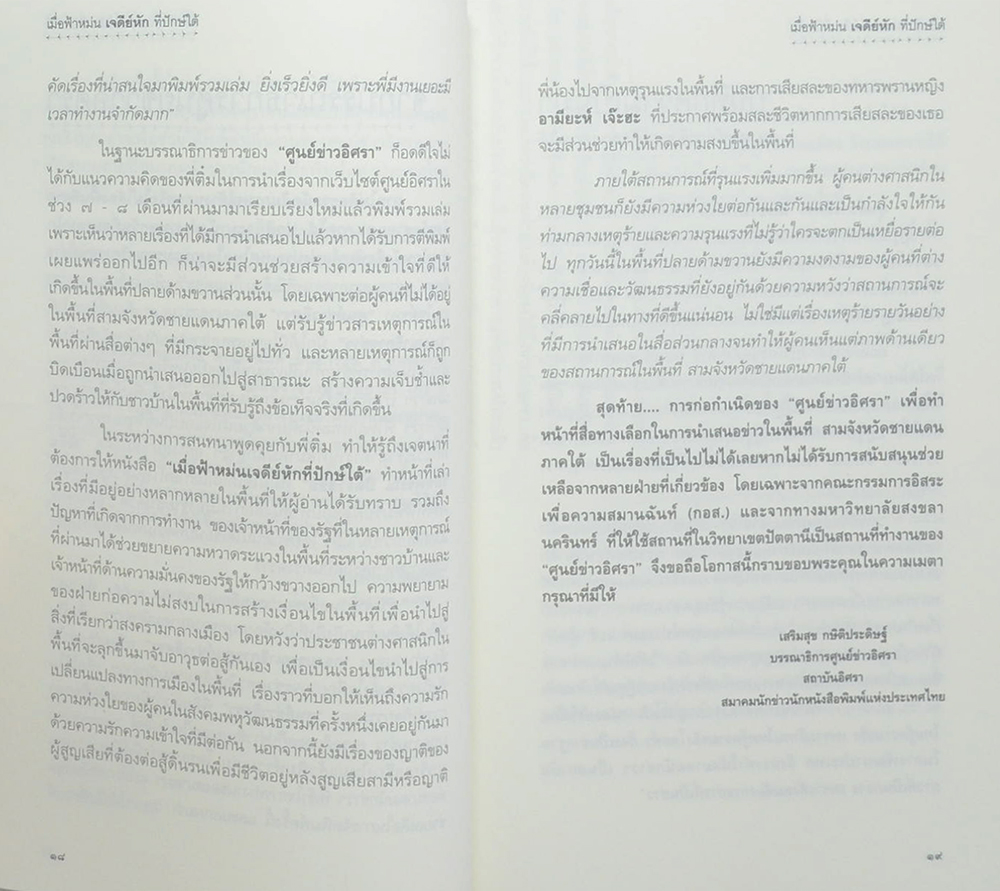 เมื่อฟ้าหม่น เจดีย์หัก ที่ปักษ์ใต้
คัดเรื่องที่น่าสนใจมาพิมพ์รวมเล่ม ยิ่งเร็วยิ่งดี เพราะพี่มีงานเยอะมี
เวลาทำงานจำกัดมาก”
ในฐานะบรรณาธิการข่าวของ “ศูนย์ข่าวอิศรา” ก็อดดีใจไม่
ได้กับแนวความคิดของพี่ติ๋มในการนำเรื่องจากเว็บไซต์ศูนย์อิศราใน
ช่วง ๗ - ๘ เดือนที่ผ่านมามาเรียบเรียงใหม่แล้วพิมพ์รวมเล่ม
เพราะเห็นว่าหลายเรื่องที่ได้มีการนำเสนอไปแล้วหากได้รับการตีพิมพ์
เผยแพร่ออกไปอีก ก็น่าจะมีส่วนช่วยสร้างความเข้าใจที่ดีให้
เกิดขึ้นในพื้นที่ปลายด้ามขวานส่วนนั้น โดยเฉพาะต่อผู้คนที่ไม่ได้อยู่
ในพื้นที่สามจังหวัดชายแดนภาคใต้ แต่รับรู้ข่าวสารเหตุการณ์ใน
พื้นที่ผ่านสื่อต่างๆ ที่มีกระจายอยู่ไปทั่ว และหลายเหตุการณ์ก็ถูก
บิดเบือนเมื่อถูกนำเสนอออกไปสู่สาธารณะ สร้างความเจ็บช้ำและ
ปวดร้าวให้กับชาวบ้านในพื้นที่ที่รับรู้ถึงข้อเท็จจริงที่เกิดขึ้น
ในระหว่างการสนทนาพูดคุยกับพี่ติ๋ม ทำให้รู้ถึงเจตนาที่
ต้องการให้หนังสือ “เมื่อฟ้าหม่นเจดีย์หักที่ปักษ์ใต้” ทำหน้าที่เล่า
เรื่องที่มีอยู่อย่างหลากหลายในพื้นที่ให้ผู้อ่านได้รับทราบ รวมถึง
ปัญหาที่เกิดจากการทำงาน ของเจ้าหน้าที่ของรัฐที่ในหลายเหตุการณ์
ที่ผ่านมาได้ช่วยขยายความหวาดระแวงในพื้นที่ระหว่างชาวบ้านและ
เจ้าหน้าที่ด้านความมั่นคงของรัฐให้กว้างขวางออกไป ความพยายาม
ของฝ่ายก่อความไม่สงบในการสร้างเงื่อนไขในพื้นที่เพื่อนำไปสู่
สิ่งที่เรียกว่าสงครามกลางเมือง โดยหวังว่าประชาชนต่างศาสนิกใน
พื้นที่จะลุกขึ้นมาจับอาวุธต่อสู้กันเอง เพื่อเป็นเงื่อนไขนำไปสู่การ
เปลี่ยนแปลงทางการเมืองในพื้นที่ เรื่องราวที่บอกให้เห็นถึงความรัก
ความห่วงใยของผู้คนในสังคมพหุวัฒนธรรมที่ครั้งหนึ่งเคยอยู่กันมา
ด้วยความรักความเข้าใจที่มีต่อกัน นอกจากนี้ยังมีเรื่องของญาติของ
ผู้สูญเสียที่ต้องต่อสู้ดิ้นรนเพื่อมีชีวิตอยู่หลังสูญเสียสามีหรือญาติ
๑๘
เมื่อฟ้าหม่น เจดีย์หัก ที่ปักษ์ใต้
พี่น้องไปจากเหตุรุนแรงในพื้นที่ และการเสียสละของทหารพรานหญิง
อามียะห์ เจ๊ะฮะ ที่ประกาศพร้อมสละชีวิตหากการเสียสละของเธอ
จะมีส่วนช่วยทำให้เกิดความสงบขึ้นในพื้นที่
ภายใต้สถานการณ์ที่รุนแรงเพิ่มมากขึ้น ผู้คนต่างศาสนิกใน
หลายชุมชนก็ยังมีความห่วงใยต่อกันและกันและเป็นกำลังใจให้กัน
ท่ามกลางเหตุร้ายและความรุนแรงที่ไม่รู้ว่าใครจะตกเป็นเหยื่อรายต่อ
ไป ทุกวันนี้ในพื้นที่ปลายด้ามขวานยังมีความงดงามของผู้คนที่ต่าง
ความเชื่อและวัฒนธรรมที่ยังอยู่กันด้วยความหวังว่าสถานการณ์จะ
คลี่คลายไปในทางที่ดีขึ้นแน่นอน ไม่ใช่มีแต่เรื่องเหตุร้ายรายวันอย่าง
ที่มีการนำเสนอในสื่อส่วนกลางจนทำให้ผู้คนเห็นแต่ภาพด้านเดียว
ของสถานการณ์ในพื้นที่ สามจังหวัดชายแดนภาคใต้
สุดท้าย.... การก่อกำเนิดของ “ศูนย์ข่าวอิศรา” เพื่อทำ
หน้าที่สื่อทางเลือกในการนำเสนอข่าวในพื้นที่ สามจังหวัดชายแดน
ภาคใต้ เป็นเรื่องที่เป็นไปไม่ได้เลยหากไม่ได้รับการสนับสนุนช่วย
เหลือจากหลายฝ่ายที่เกี่ยวข้อง โดยเฉพาะจากคณะกรรมการอิสระ
เพื่อความสมานฉันท์ (กอส.) และจากทางมหาวิทยาลัยสงขลา
นครินทร์ ที่ให้ใช้สถานที่ในวิทยาเขตปัตตานีเป็นสถานที่ทำงานของ
“ศูนย์ข่าวอิศรา” จึงขอถือโอกาสนี้กราบขอบพระคุณในความเมตตา
กรุณาที่มีให้
เสริมสุข กษิติประดิษฐ์
บรรณาธิการศูนย์ข่าวอิศรา
สถาบันอิศรา
สมาคมนักข่าวนักหนังสือพิมพ์แห่งประเทศไทย
๑๙